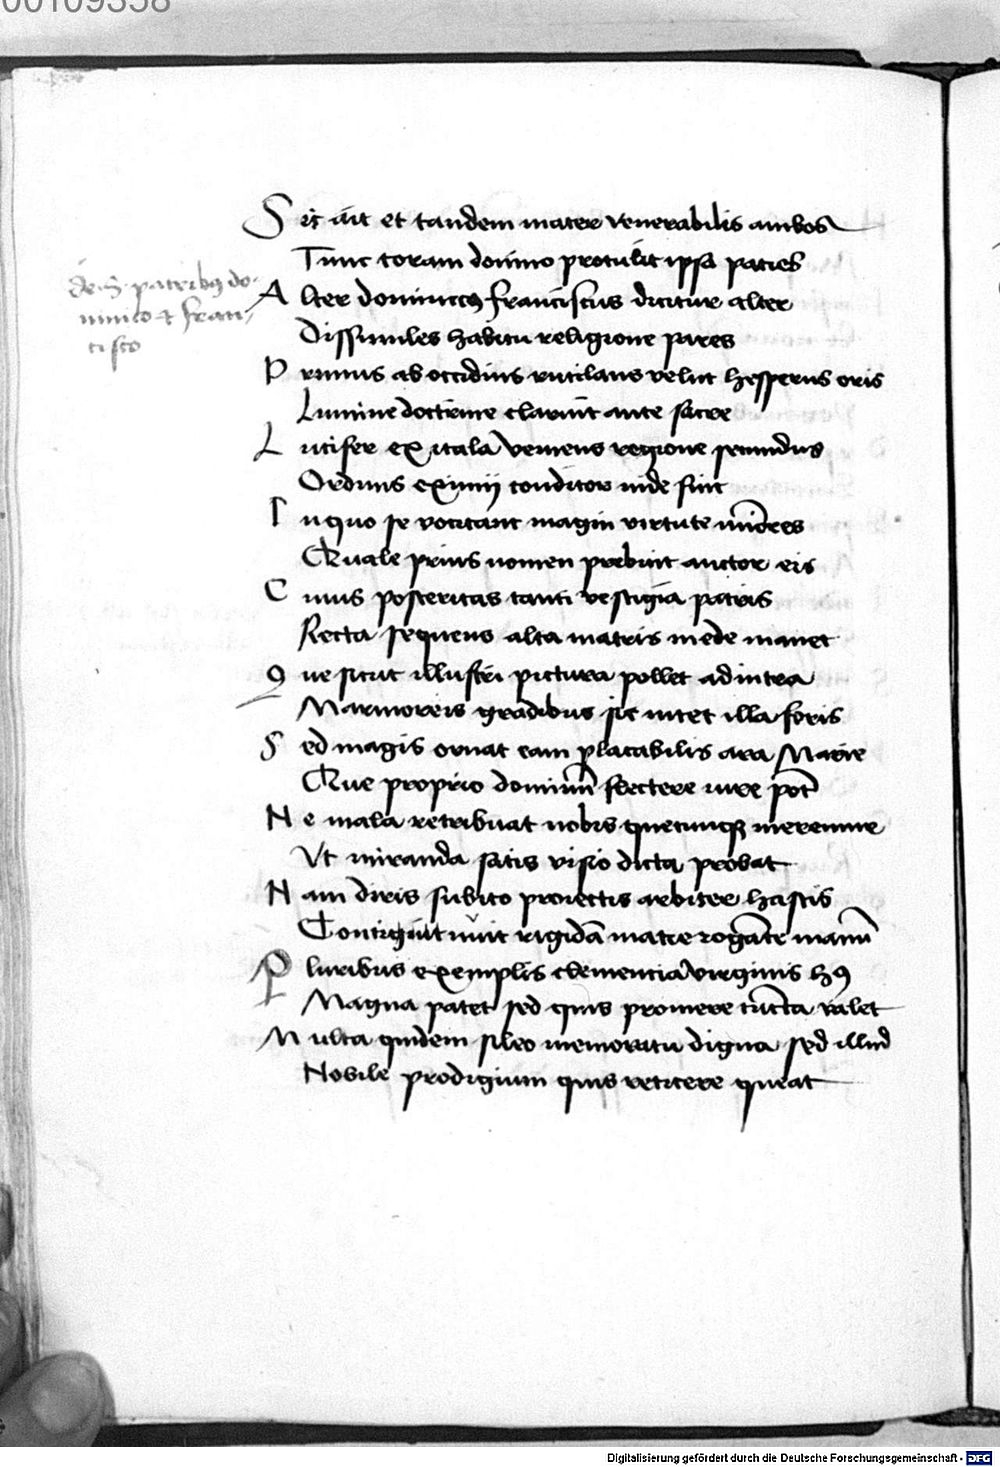 00109358
Sic ait et tandem mater venerabilis ambos
Tunc coram domino protulit ipsa patres
de ss. patribus do-
minico et fran-
cisco
Alter dominicus franciscus dicitur alter
Dissimiles habitu religione pares
Primus ab occiduis rutilans velut hesperus oris
Lumine doctrine claruit ante sacre
Lucifer ex itala veniens regione secundus
Ordinis eximij conditor inde fuit
In quo se vocitant magni virtute minores
Quale prius nomen prebuit auctor eis
Cuius posteritas tanti vestigia patris
Recta sequens alta matris in ede manet
Que sicut illustri pictura pollet ad intra
Marmoreis gradibus sic nitet illa foris
Sed magis ornat eam placabilis ara Marie
Que proprio dominum flectere iure pot
Ne mala retribuat nobis quecunque meremur
Vt miranda satis visio dicta probat
Nam diris subito proiectis arbiter hastis
Continuit rigidam matre rogante manum
Pluribus exemplis clementia virginis hec
Magna patet sed quis promere cuncta valet
Multa quidem sileo memoratu digna sed illud
Nobile prodigium quis reticere queat
Digitalisierung gefördert durch die Deutsche Forschungsgemeinschaft - DFG